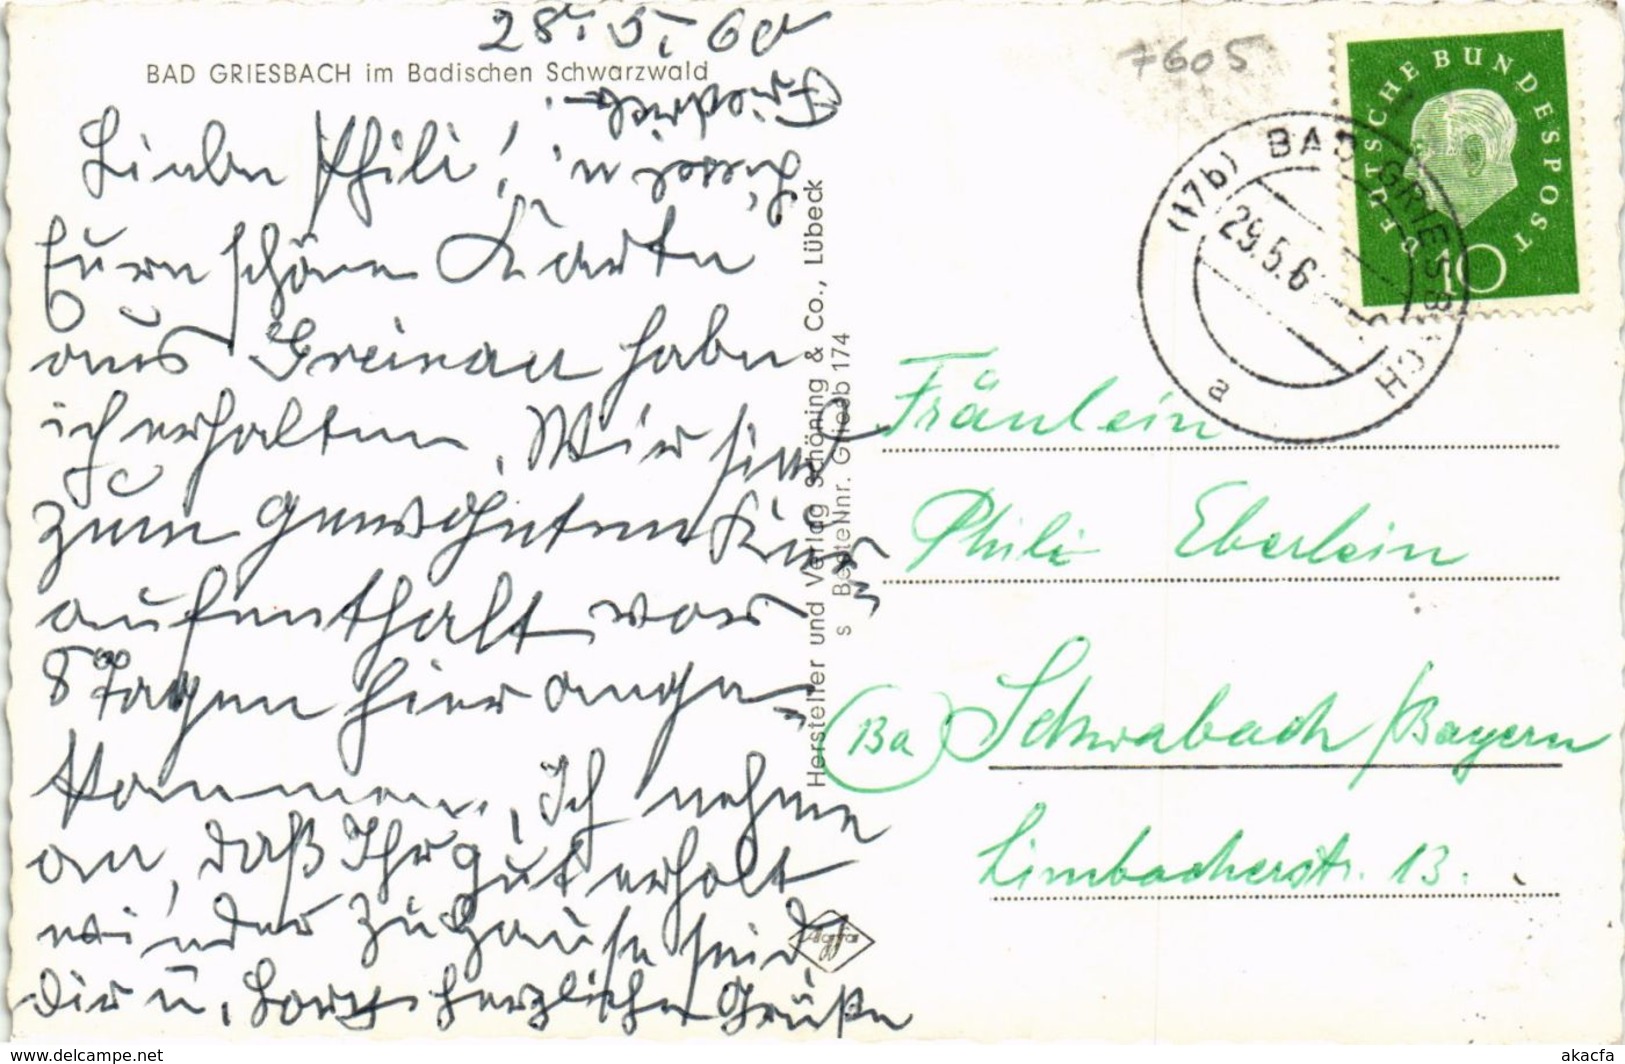 28. 5. 60
7605
BAD GRIESBACH im Badischen Schwarzwald
Liebe Phili!
Eure schöne Karte
aus Greinau habe
ich erhalten. Wir sind
zum gewohnten Kur-
aufenthalt vor
8 Tagen hier ange-
kommen. Ich nehme
an, daß Ihr gut erholt
wieder zu Hause seid.
Dir u. herzliche Grüße
Liesel u.
Friedrich.
Hersteller und Verlag Schöning & Co., Lübeck
s BestellNr. Griesb 174
Agfa
DEUTSCHE BUNDESPOST
10
(17b) BAD GRIESBACH
29.5.6
a
Fräulein
Phili Eberlein
(13a) Schwabach/Bayern
Limbacherstr. 13.
www.delcampe.net
akacfa